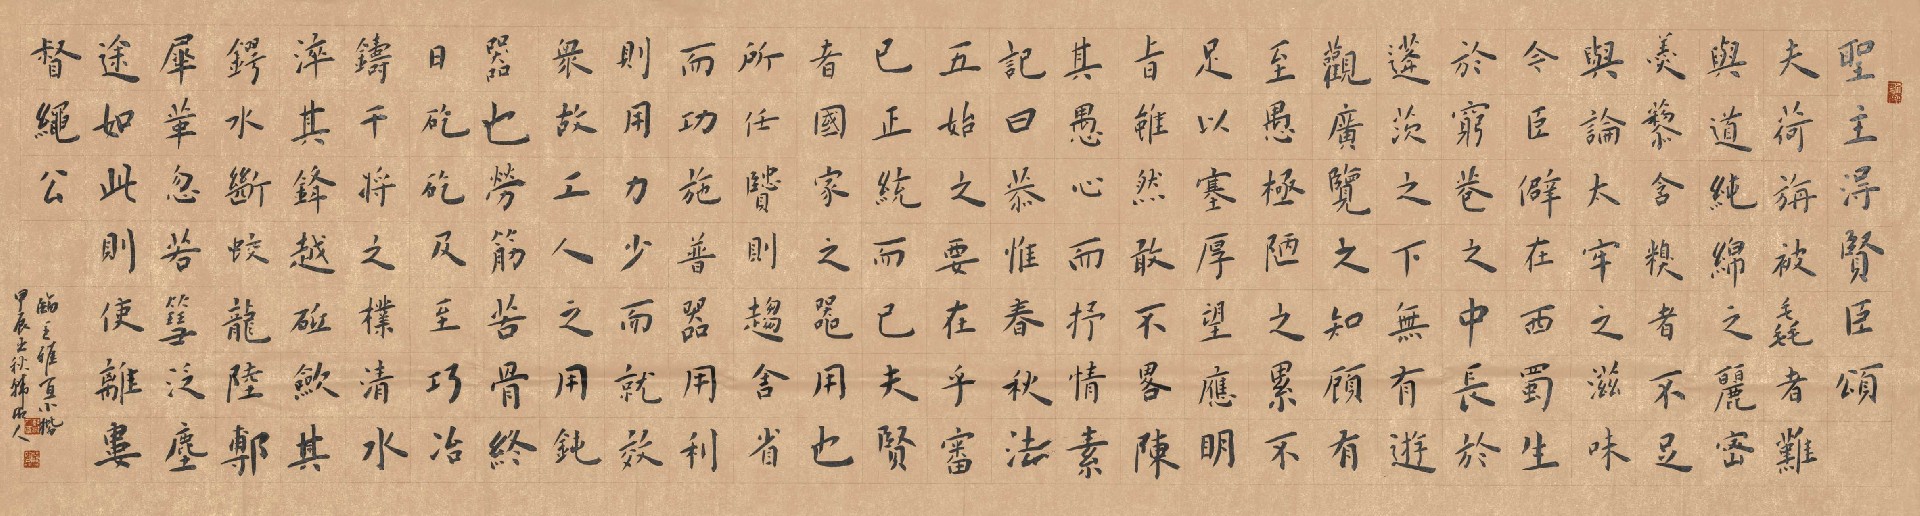 聖主得賢臣頌
夫荷旃被毳者難
與道純綿之麗密
羮藜含糗者不足
與論太牢之滋味
今臣僻在西蜀生
於窮巷之中長於
蓬茨之下無有遊
觀廣覽之知顧有
至愚極陋之累不
足以塞厚望應明
旨雖然敢不畧陳
其愚心而抒情素
記曰恭惟春秋法
五始之要在乎審
已正統而已夫賢
者國家之器用也
所任賢則趨舍省
而功施普器用利
則用力少而就效
衆故工人之用鈍
器也勞筋苦骨終
日矻矻及至巧冶
鑄干將之樸清水
淬其鋒越砥歛其
鍔水斷蛟龍陸剸
犀革忽若篲泛塵
途如此則使離婁
督繩公
臨王雅宜小楷
甲辰之秋